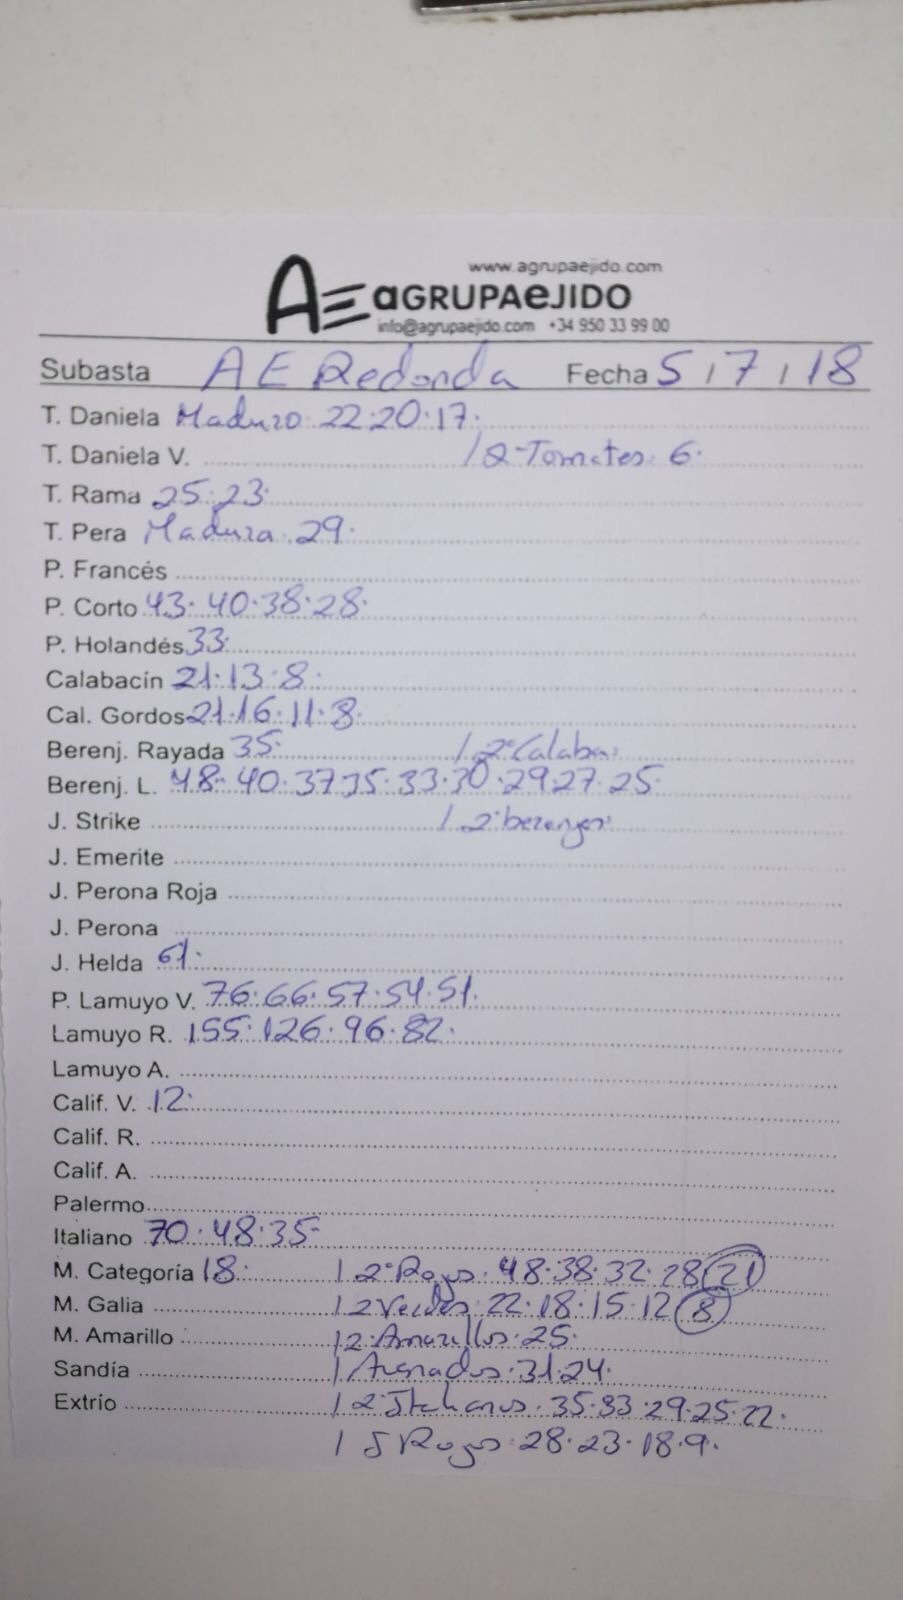 www.agrupaejido.com
AE aGRUPAeJIDO
info@agrupaejido.com +34 950 33 99 00
Subasta AE Redonda Fecha 5/7/18
T. Daniela Maduro 22·20·17·
T. Daniela V. / 2ª Tomates· 6·
T. Rama 25·23·
T. Pera Madura·29·
P. Francés
P. Corto 43·40·38·28·
P. Holandés 33·
Calabacín 21·13·8·
Cal. Gordos 21·16·11·8·
Berenj. Rayada 35· / 2ª Calaba:
Berenj. L. 48·40·37·35·33·30·29·27·25·
J. Strike / 2ª berenjes:
J. Emerite
J. Perona Roja
J. Perona
J. Helda 61·
P. Lamuyo V. 76·66·57·54·51·
Lamuyo R. 155·126·96·82·
Lamuyo A.
Calif. V. 12·
Calif. R.
Calif. A.
Palermo
Italiano 70·48·35·
M. Categoría 18· / 2ª Rojos·48·38·32·28 21
M. Galia / 2 Verdes·22·18·15·12 8
M. Amarillo / 2·Amarillos·25·
Sandía / Asurados·31·24·
Extrío / 2 Italianos·35·33·29·25·22·
/ J Rojos·28·23·18·9·